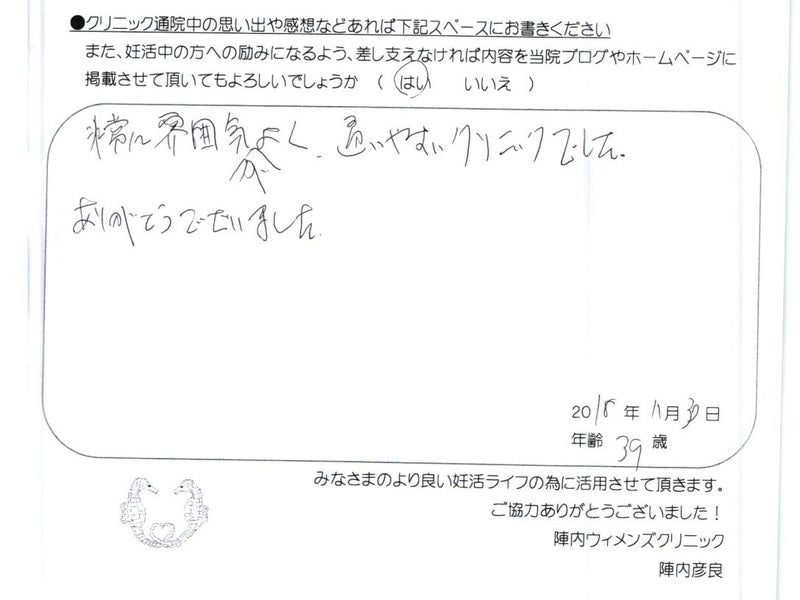 ●クリニック通院中の思い出や感想などあれば下記スペースにお書きください
また、妊活中の方への励みになるよう、差し支えなければ内容を当院ブログやホームページに
掲載させて頂いてもよろしいでしょうか ( はい いいえ )
非常に雰囲気がよく、通いやすいクリニックでした。
ありがとうございました。
2018年 11月30日
年齢 39 歳
みなさまのより良い妊活ライフの為に活用させて頂きます。
ご協力ありがとうございました！
陣内ウィメンズクリニック
陣内彦良